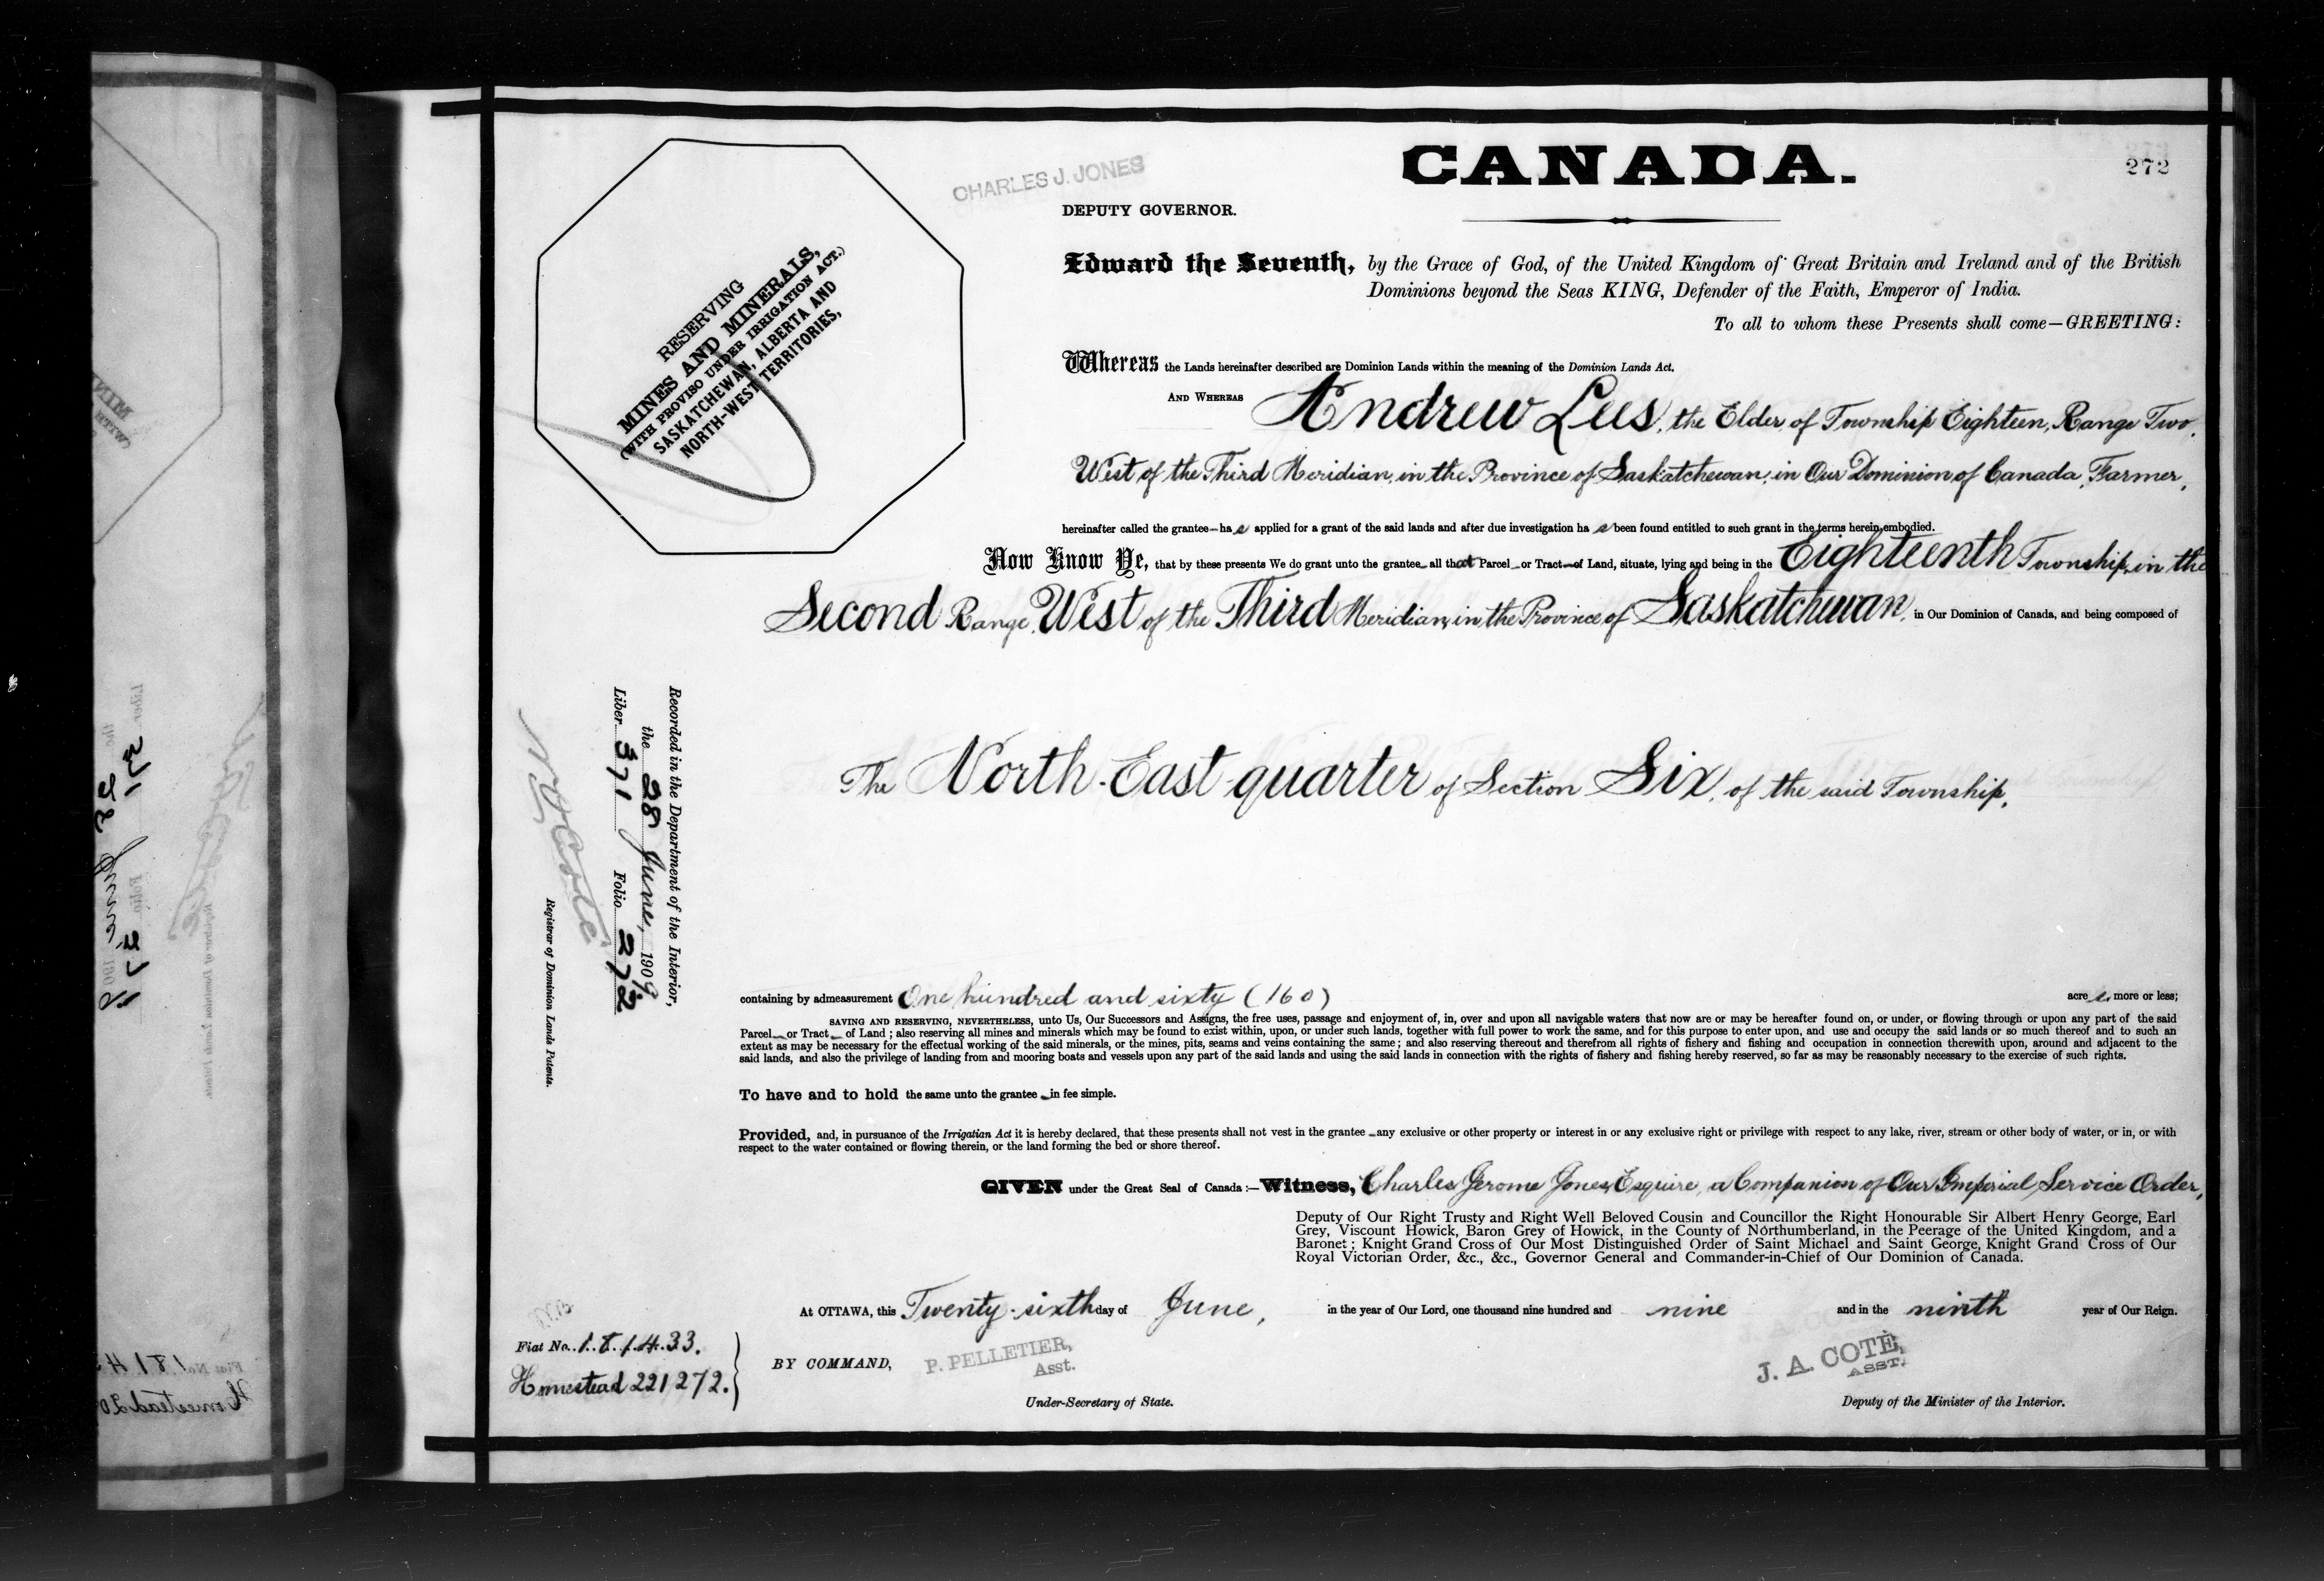 CANADA.
272
CHARLES J. JONES
DEPUTY GOVERNOR.
RESERVING
MINES AND MINERALS,
(WITH PROVISO UNDER IRRIGATION ACT.)
SASKATCHEWAN, ALBERTA AND
NORTH-WEST TERRITORIES,
Edward the Seventh, by the Grace of God, of the United Kingdom of Great Britain and Ireland and of the British
Dominions beyond the Seas KING, Defender of the Faith, Emperor of India.
To all to whom these Presents shall come—GREETING:
Whereas the Lands hereinafter described are Dominion Lands within the meaning of the Dominion Lands Act.
AND WHEREAS Andrew Lees, the Elder of Township Eighteen, Range Two,
West of the Third Meridian, in the Province of Saskatchewan, in Our Dominion of Canada, Farmer,
hereinafter called the grantee—has applied for a grant of the said lands and after due investigation has been found entitled to such grant in the terms herein embodied.
Now Know Ye, that by these presents We do grant unto the grantee all that Parcel or Tract of Land, situate, lying and being in the Eighteenth Township, in the
Second Range, West of the Third Meridian, in the Province of Saskatchewan, in Our Dominion of Canada, and being composed of
The North-East quarter of Section Six, of the said Township,
Recorded in the Department of the Interior,
the 28 June, 1909
Liber 371 Folio 272
Registrar of Dominion Lands Patents.
containing by admeasurement One hundred and sixty (160) acres, more or less;
SAVING AND RESERVING, NEVERTHELESS, unto Us, Our Successors and Assigns, the free uses, passage and enjoyment of, in, over and upon all navigable waters that now are or may be hereafter found on, or under, or flowing through or upon any part of the said
Parcel or Tract of Land; also reserving all mines and minerals which may be found to exist within, upon, or under such lands, together with full power to work the same, and for this purpose to enter upon, and use and occupy the said lands or so much thereof and to such an
extent as may be necessary for the effectual working of the said minerals, or the mines, pits, seams and veins containing the same; and also reserving thereout and therefrom all rights of fishery and fishing and occupation in connection therewith upon, around and adjacent to the
said lands, and also the privilege of landing from and mooring boats and vessels upon any part of the said lands and using the said lands in connection with the rights of fishery and fishing hereby reserved, so far as may be reasonably necessary to the exercise of such rights.
To have and to hold the same unto the grantee in fee simple.
Provided, and, in pursuance of the Irrigation Act it is hereby declared, that these presents shall not vest in the grantee any exclusive or other property or interest in or any exclusive right or privilege with respect to any lake, river, stream or other body of water, or in, or with
respect to the water contained or flowing therein, or the land forming the bed or shore thereof.
GIVEN under the Great Seal of Canada:—Witness, Charles Jerome Jones, Esquire, a Companion of Our Imperial Service Order,
Deputy of Our Right Trusty and Right Well Beloved Cousin and Councillor the Right Honourable Sir Albert Henry George, Earl
Grey, Viscount Howick, Baron Grey of Howick, in the County of Northumberland, in the Peerage of the United Kingdom, and a
Baronet; Knight Grand Cross of Our Most Distinguished Order of Saint Michael and Saint George, Knight Grand Cross of Our
Royal Victorian Order, &c., &c., Governor General and Commander-in-Chief of Our Dominion of Canada.
At OTTAWA, this Twenty-sixth day of June, in the year of Our Lord, one thousand nine hundred and nine and in the ninth year of Our Reign.
Fiat No. 181433.
Homestead 221272.
BY COMMAND,
P. PELLETIER,
Asst.
Under-Secretary of State.
J. A. COTÉ,
ASST.
Deputy of the Minister of the Interior.